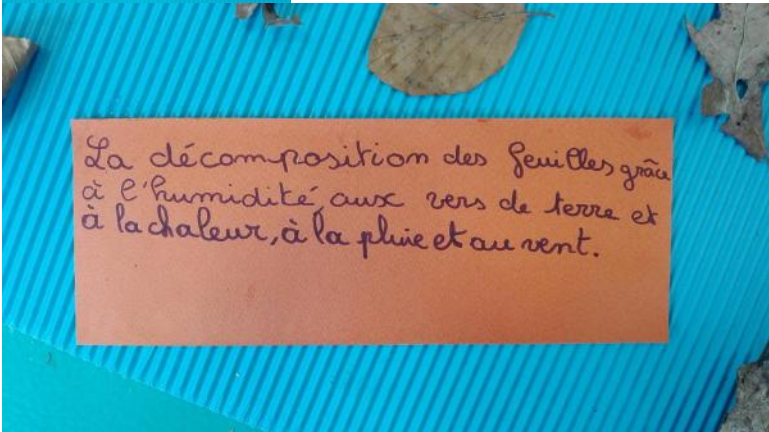 La décomposition des feuilles grâce
à l'humidité, aux vers de terre et
à la chaleur, à la pluie et au vent.